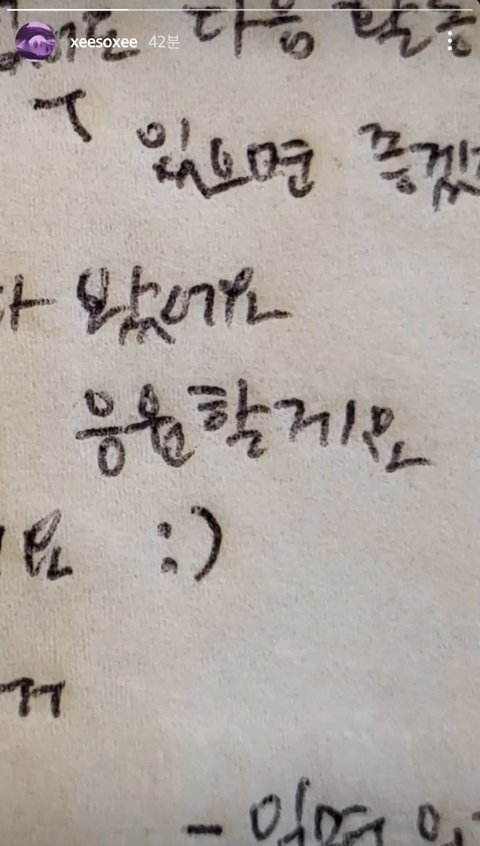 xeesoxee 42분
다음 활동
ㅜ
있으면 좋겠
다 봤어요
응원할게요
요 :)